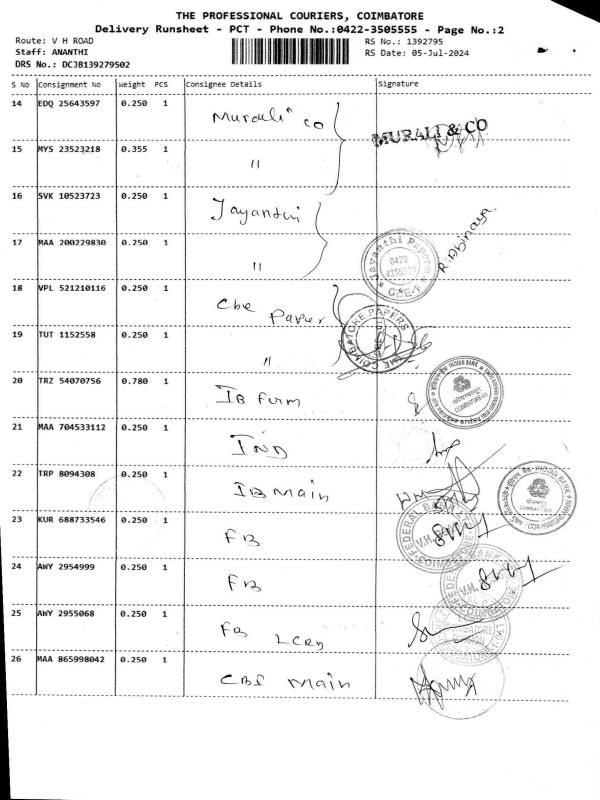 THE PROFESSIONAL COURIERS, COIMBATORE
Delivery Runsheet - PCT - Phone No.:0422-3505555 - Page No.:2
Route: V H ROAD RS No.: 1392795
Staff: ANANTHI RS Date: 05-Jul-2024
DRS No.: DCJB139279502
S No Consignment No Weight PCS Consignee Details Signature
14 EDQ 25643597 0.250 1 Murali co MURALI & CO
15 MYS 23523218 0.355 1 "
16 SVK 10523723 0.250 1 Jayanthi R. Abinaya
17 MAA 200229830 0.250 1 " Jayanthi Papers 0422 CBE-1
18 VPL 521210116 0.250 1 Cbe Paper
19 TUT 1152558 0.250 1 " THE COIMBATORE PAPERS
20 TRZ 54070756 0.780 1 IB Firm INDIAN BANK COIMBATORE-01
21 MAA 704533112 0.250 1 IND
22 TRP 8094308 0.250 1 IB Main INDIAN BANK COIMBATORE MAIN
23 KUR 688733546 0.250 1 FB FEDERAL BANK V.H. COIMBATORE
24 AWY 2954999 0.250 1 FB FEDERAL BANK V.H. COIMBATORE
25 AWY 2955068 0.250 1 FB LCRD COIMBATORE DIVISION
26 MAA 865998042 0.250 1 CBS Main